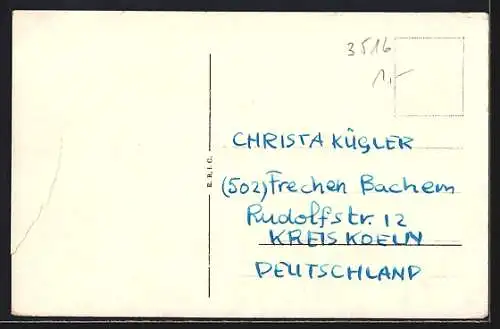 3516
1,-
CHRISTA KÜGLER
(502) Frechen Bachem
Rudolfstr. 12
KREIS KOELN
DEUTSCHLAND
E. B. I. C.